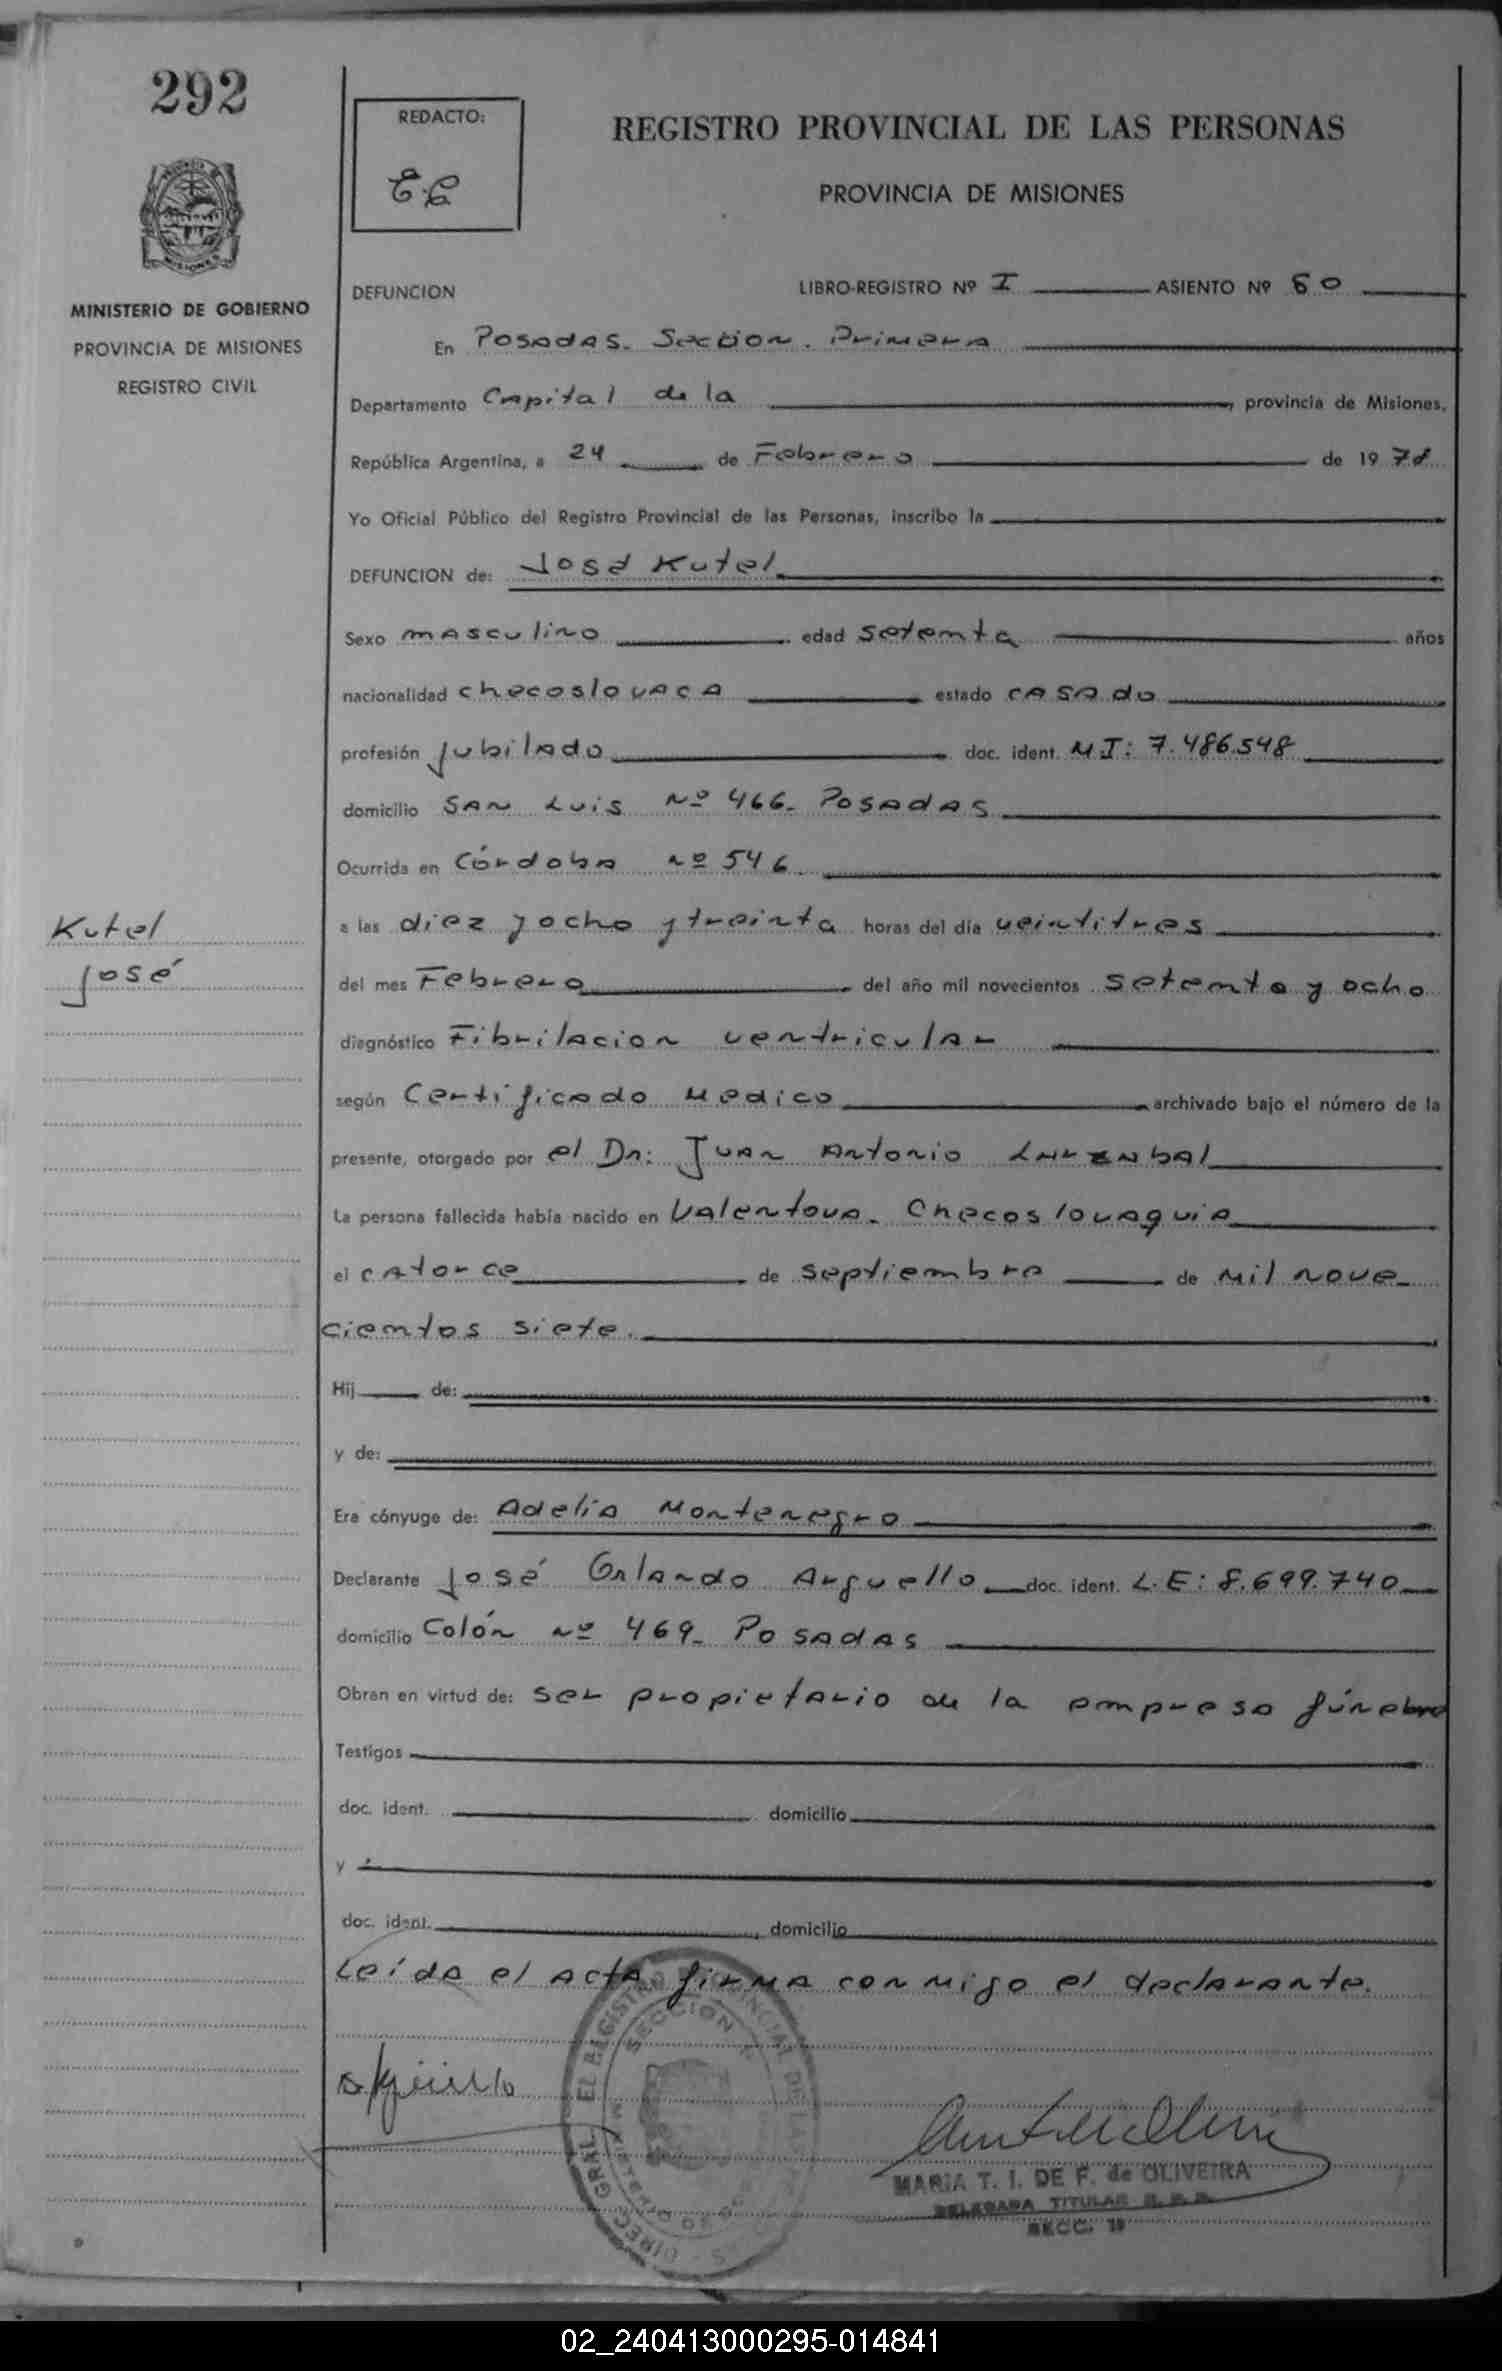 292
REDACTO:
E.C
REGISTRO PROVINCIAL DE LAS PERSONAS
PROVINCIA DE MISIONES
MISIONES
MINISTERIO DE GOBIERNO
PROVINCIA DE MISIONES
REGISTRO CIVIL
DEFUNCION LIBRO-REGISTRO Nº I ASIENTO Nº 60
En Posadas. Seccion. Primera
Departamento Capital de la, provincia de Misiones,
República Argentina, a 24 de Febrero de 1978
Yo Oficial Público del Registro Provincial de las Personas, inscribo la
DEFUNCION de: José Kutel
Sexo masculino edad setenta años
nacionalidad checoslovaca estado casado
profesión jubilado doc. ident. M I: 7.486.548
domicilio San Luis Nº 466. Posadas
Ocurrida en Córdoba nº 546
a las diez y ocho y treinta horas del día veintitres
del mes Febrero del año mil novecientos setenta y ocho
diagnóstico Fibrilacion ventricular
según Certificado Medico archivado bajo el número de la
presente, otorgado por el Dr: Juan Antonio
La persona fallecida había nacido en Valentova. Checoslovaquia
el catorce de septiembre de mil nove_
cientos siete.
Hij de:
y de:
Era cónyuge de: Adelia Montenegro
Declarante José Orlando Arguello doc. ident. L.E: 8.699.740
domicilio Colón nº 469. Posadas
Obran en virtud de: ser propietario de la empresa fúnebre
Testigos
doc. ident. domicilio
y
doc. ident. , domicilio
Leída el acta firma conmigo el declarante.
Kutel
José
MARIA T. I. DE F. de OLIVEIRA
DELEGADA TITULAR R. P. P.
SECC. 1ª
02_240413000295-014841